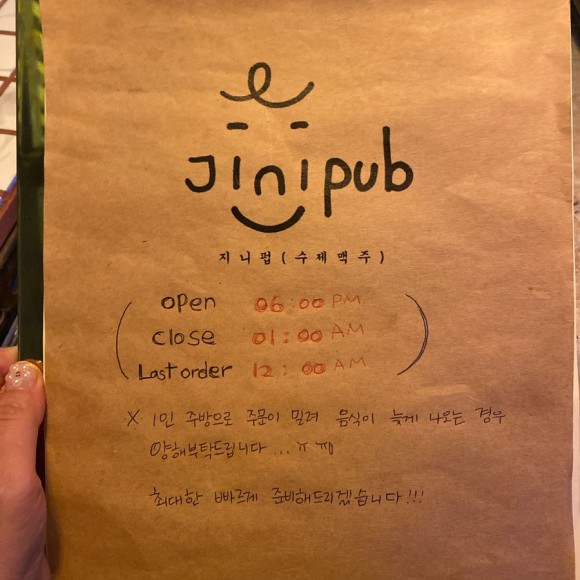 Jinipub
지니펍(수제맥주)
open 06:00 PM
close 01:00 AM
Last order 12:00 AM
X 1인 주방으로 주문이 밀려 음식이 늦게 나오는 경우
양해부탁드립니다...ㅠ
최대한 빠르게 준비해드리겠습니다!!!